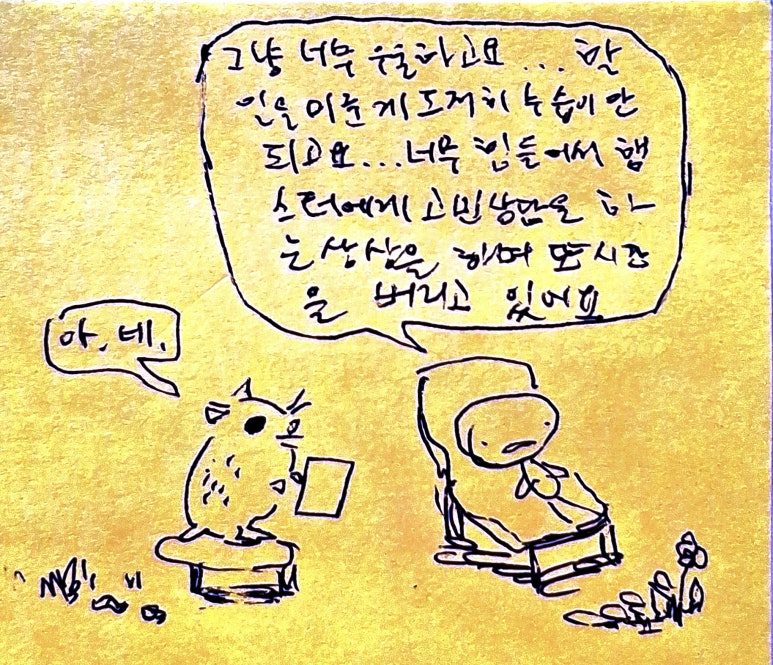 그냥 너무 우울하고요... 할
일을 미룬 게 도저히 수습이 안
되고요...너무 힘들어서 햄
스터에게 고민상담을 하
는 상상을 하며 또 시간
을 버리고 있어요
아, 네.